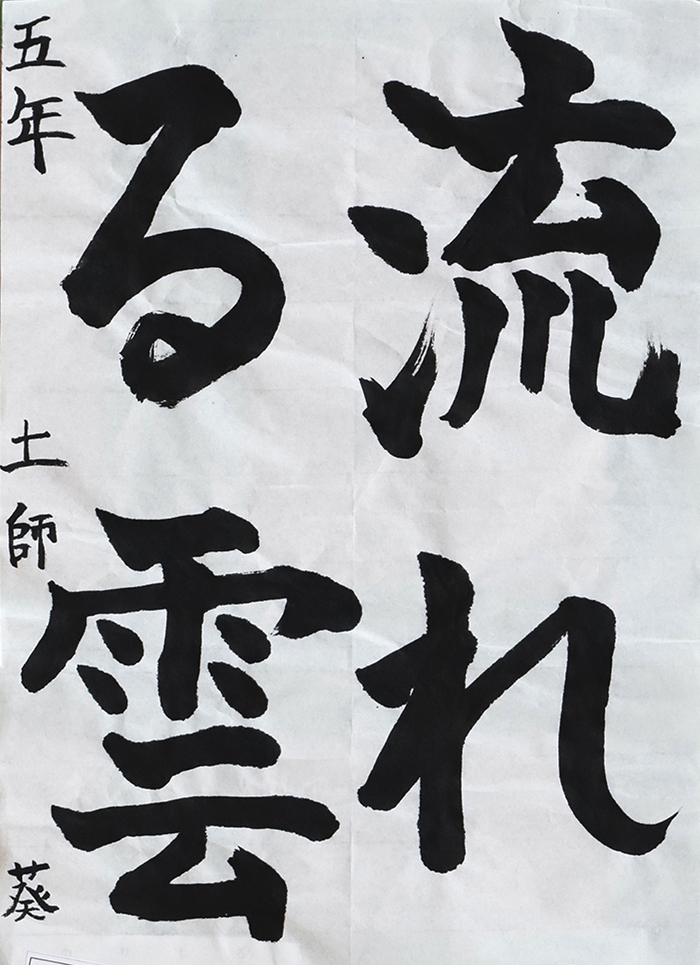 流れ
る雲
五年 土師 葵